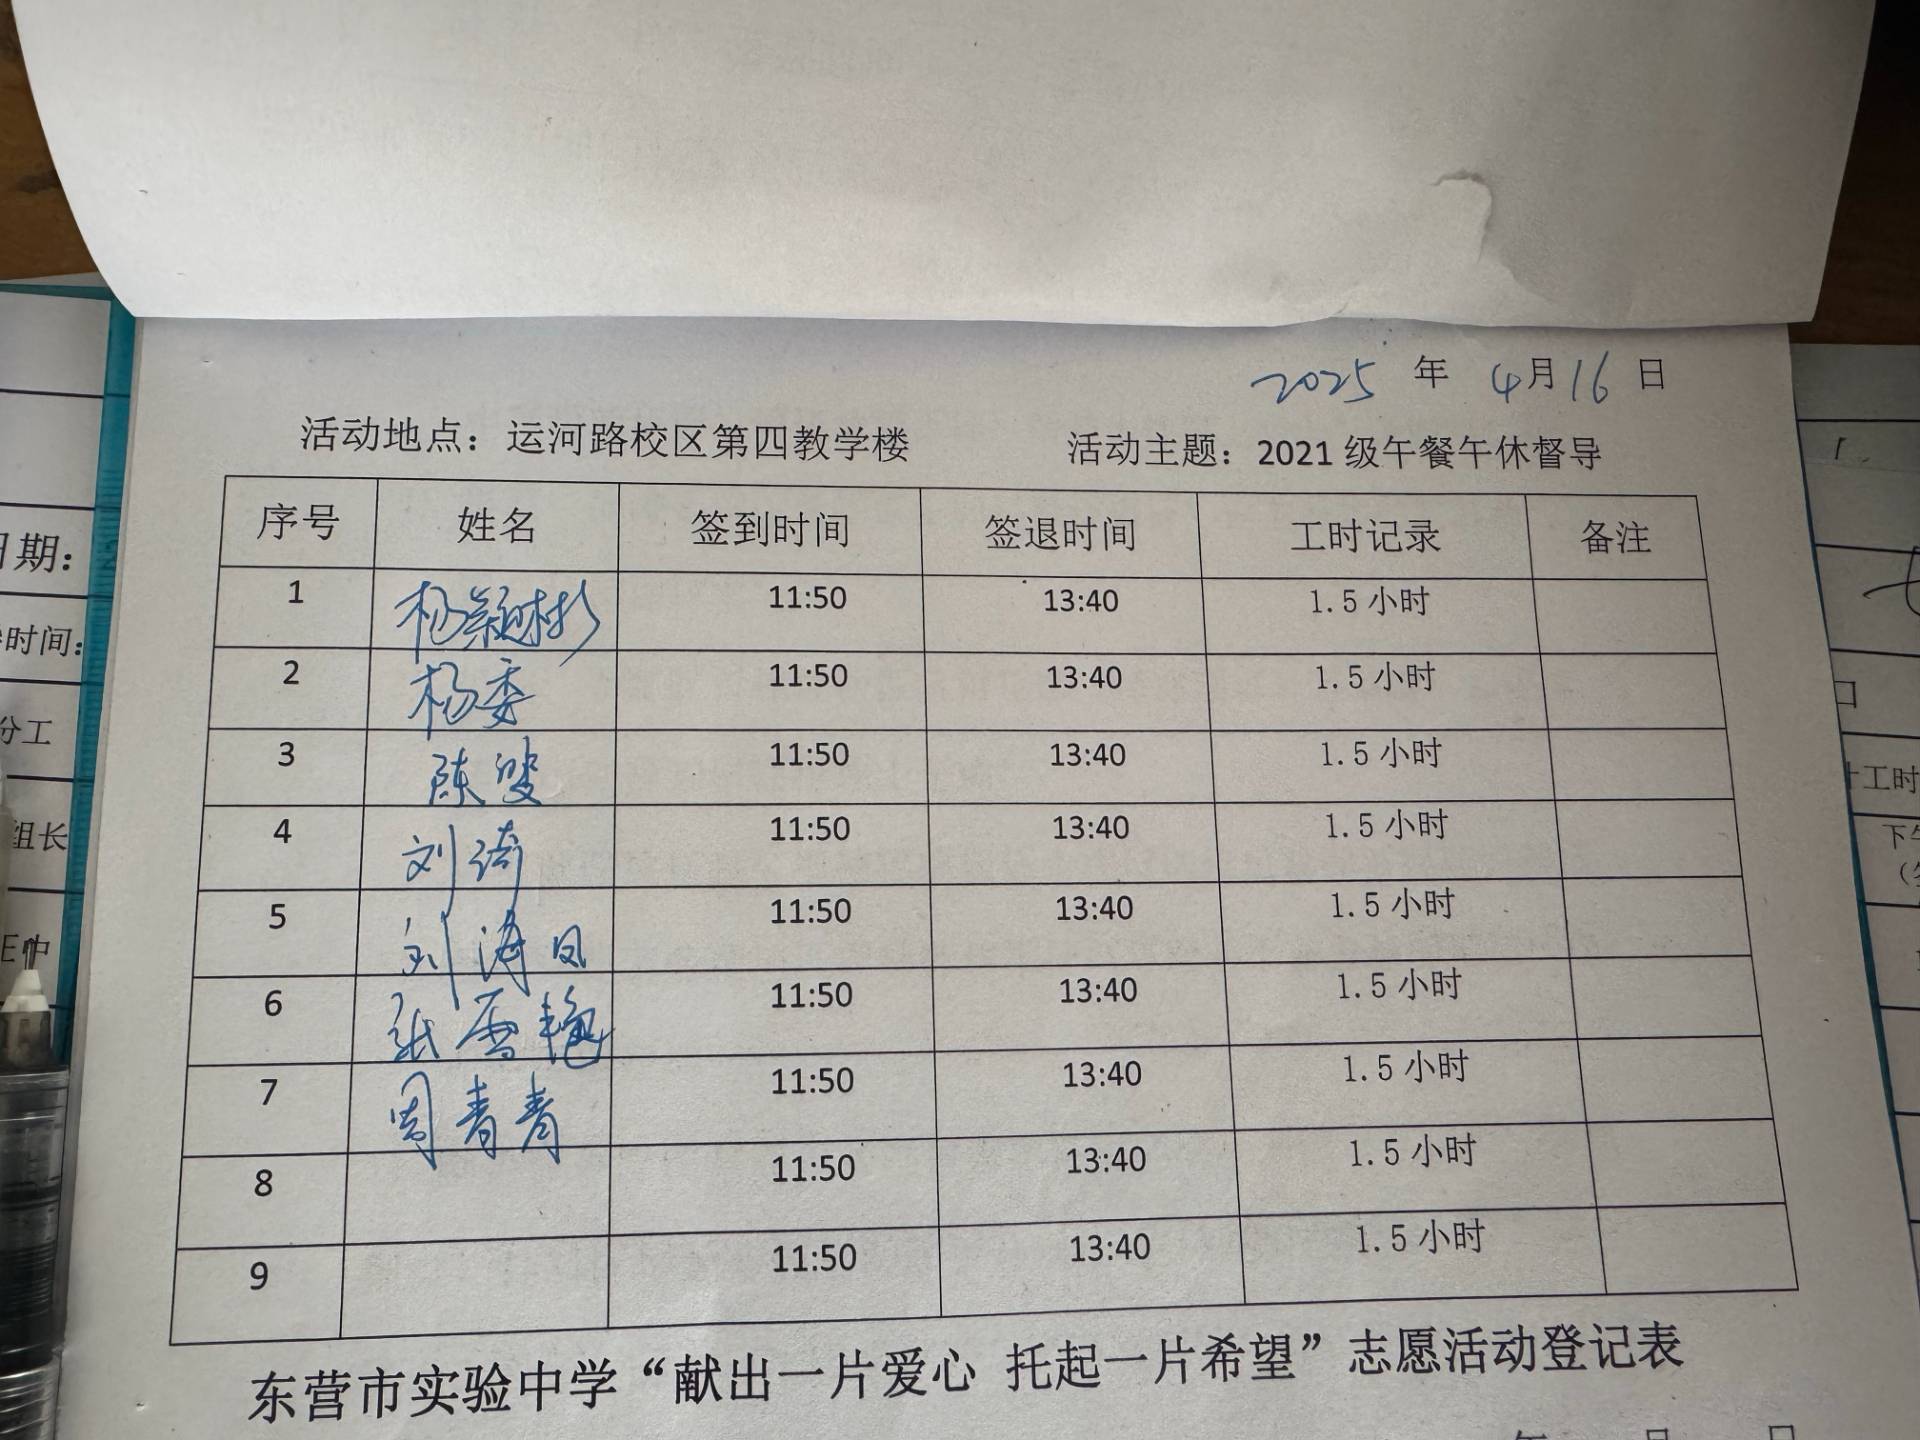 2025 年 4月16 日
活动地点：运河路校区第四教学楼 活动主题：2021 级午餐午休督导
序号 姓名 签到时间 签退时间 工时记录 备注
1 杨颖彬 11:50 13:40 1.5 小时
2 杨委 11:50 13:40 1.5 小时
3 陈 11:50 13:40 1.5 小时
4 刘 11:50 13:40 1.5 小时
5 刘海凤 11:50 13:40 1.5 小时
6 张雪艳 11:50 13:40 1.5 小时
7 周青青 11:50 13:40 1.5 小时
8 11:50 13:40 1.5 小时
9 11:50 13:40 1.5 小时
东营市实验中学“献出一片爱心 托起一片希望”志愿活动登记表
年 月 日
日期：
时间：
分工
组长
口
计工时
下午